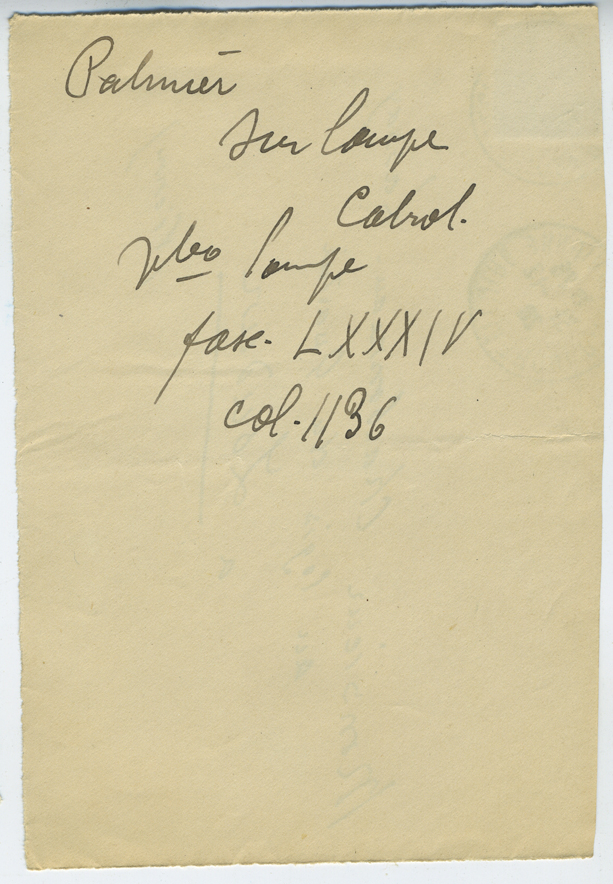 Palmier
sur lampe
Cabrol.
vbo lampe
fasc. LXXXIV
col. 1136